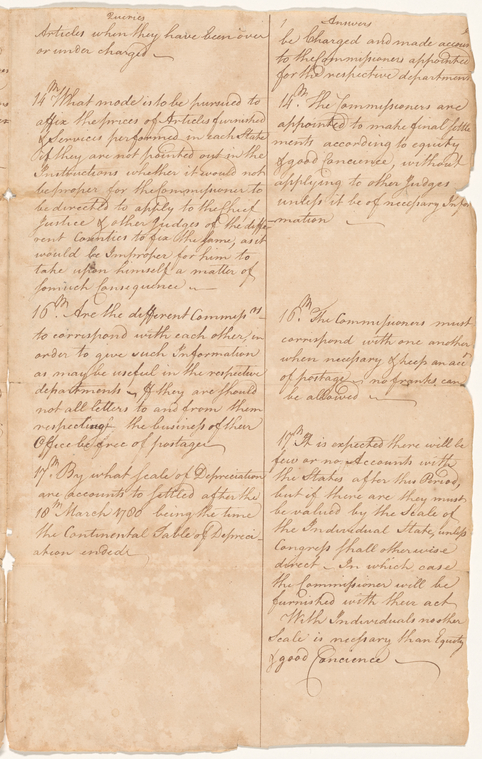 Queries
Articles when they have been over
or under charged
14th What mode is to be pursued to
affix the prices of Articles furnished
& Services performed in each State
if they are not pointed out in the
Instructions whether it would not
be proper for the Commissioner to
be directed to apply to the Chief
Justice & other Judges of the diffe-
rent Counties to fix the same, as it
would be Improper for him to
take upon himself a matter of
so much Consequence
16th Are the different Commissrs
to correspond with each other, in
order to give such Information
as may be useful in the respective
departments If they are should
not all letters to and from them
respecting the business of their
Office be free of postage
17th By what Scale of Depreciation
are accounts to settled after the
18th March 1780 being the time
the Continental Table of Deprec-
ation ended
Answers
be Charged and made accou
to the Commissioners appointed
for the respective department
14th The Commissioners are
appointed to make final settle
ments according to equity
& good Concience, without
applying to other Judges
unless it be of necessary Infor
mation
16th The Commissioners must
correspond with one another
when necessary & keep an acct
of postage no franks can
be allowed
17th It is expected there will be
few or no Accounts with
the States after this Period,
but if there are they must
be valued by the Scale of
the Individual State, unless
Congress shall otherwise
direct - In which case
the Commissioner will be
furnished with their act
With Individuals no other
Scale is necessary than Equity
& good Concience